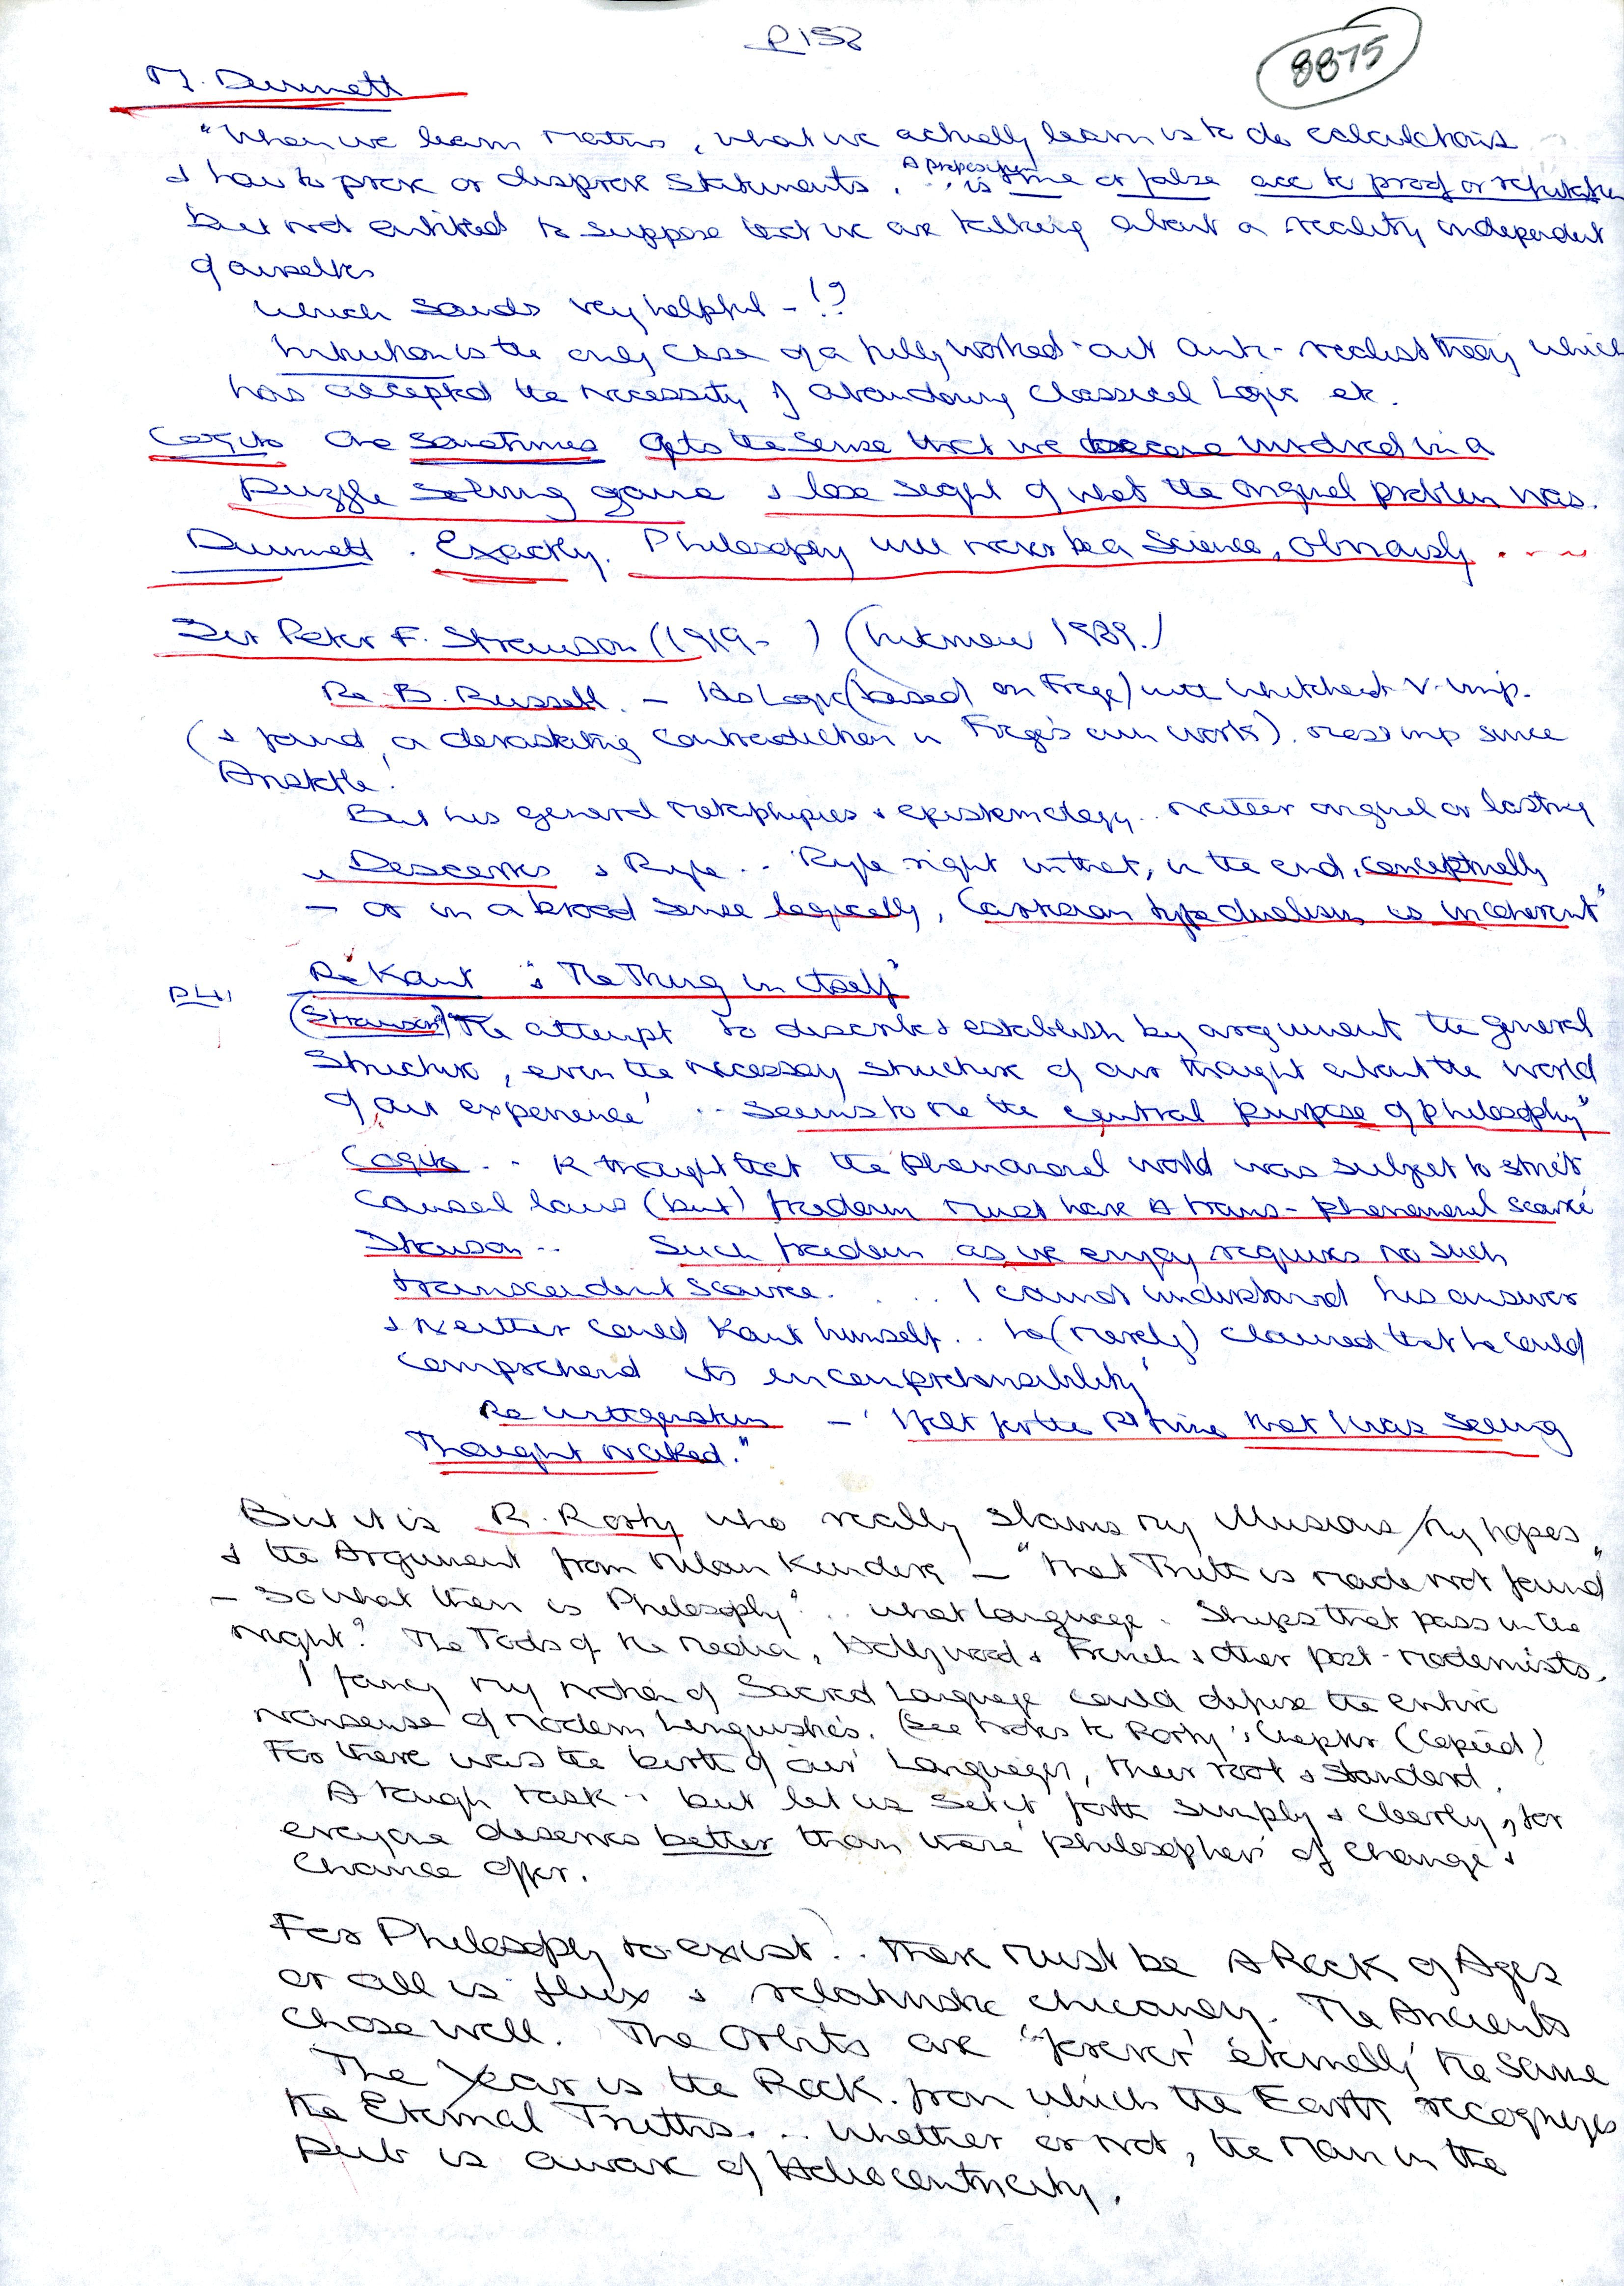 p152
8875
M. Dummett
"When we learn Maths, what we actually learn is to do calculations
& how to prove or disprove statements. A proposition .. is true or false acc to proof or refutation
but not entitled to suppose that we are talking about a reality independent
of ourselves
Which sounds very helpful – !?
Intuition is the only case of a fully worked-out anti-realist theory which
has accepted the necessity of abandoning Classical Logic etc.
Cogito One sometimes gets the sense that we become involved in a
puzzle solving game & lose sight of what the original problem was.
Dummett. Exactly. Philosophy will never be a Science, obviously . . . .
Sir Peter F. Strawson (1919- ) (Interview 1989.)
Re B. Russell. – His Logic (based on Frege) with Whitehead v. imp.
(& found a devastating contradiction in Frege's own work). most imp since
Aristotle!
But his general metaphysics & epistemology .. neither original or lasting
Descartes & Ryle .. 'Ryle right in that, in the end, conceptually
– or in a broad sense logically, Cartesian type dualism is incoherent"
Re Kant & "The Thing in itself"
P41
(Strawson) "The attempt to describe & establish by argument the general
structure, even the necessary structure of our thought about the world
of our experience' .. seems to me the central purpose of philosophy"
Cogito .. K thought that the phenomenal world was subject to strict
causal laws (but) freedom must have a trans-phenomenal source
Strawson .. Such freedom as we enjoy requires no such
transcendent source. . . . I cannot understand his answer
& neither could Kant himself .. he (merely) claimed that he could
comprehend its incomprehensibility'
Re Wittgenstein – 'I felt for the 1st time that I was seeing
Thought naked."
But it is R. Rorty who really slams my illusions / my hopes
& the Argument from Milan Kundera – "That Truth is made not found"
– So what then is Philosophy? .. what Language. Ships that pass in the
night? The Tools of the Media, Hollywood & French & other post-modernists.
I fancy my notion of Sacred Language could defuse the entire
nonsense of Modern Linguistics. (See notes to Rorty's Chapter (Copied)
For there was the birth of our Languages, their root & standard.
A tough task .. but let us set it forth simply & clearly, for
everyone deserves better than these 'philosophers' of change &
chance offer.
For Philosophy to exist .. there must be A Rock of Ages
or all is flux & relativistic chicanery. The Ancients
chose well. The Orbits are 'forever' 'eternally' the same
The Year is the Rock. from which the Earth recognizes
the Eternal Truths. .. whether or not, the man in the
Pub is aware of Heliocentricity.